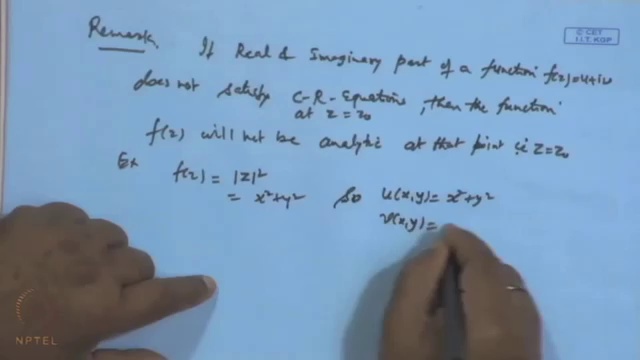 © CET
I.I.T. KGP
Remark. If Real & Imaginary part of a function f(z)=u+iv
does not satisfy C-R-Equations, then the function
at z=z₀
f(z) will not be analytic at that point i.e. z=z₀
Ex f(z) = |z|²
= x²+y² So u(x,y)= x²+y²
v(x,y)=
NPTEL